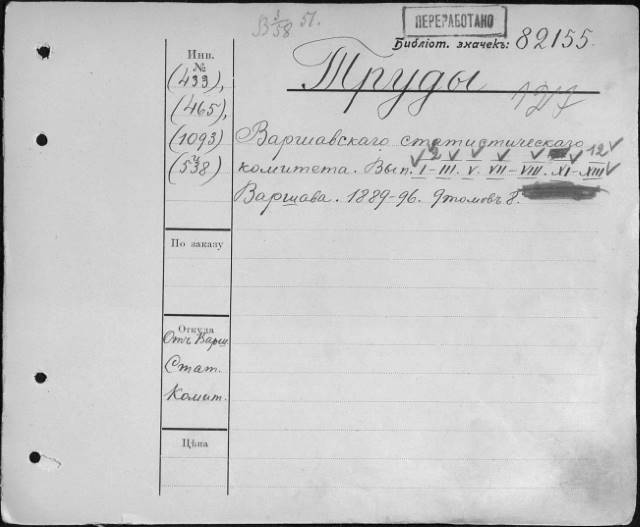 ПЕРЕРАБОТАНО
Библіот. значекъ: 82155.
Инв.
№
(433),
(465),
(1093)
(538)
Труды
Варшавскаго статистическаго
комитета. Вып. I-III. V. VII-VIII. XI-XIII
Варшава. 1889-96. 9 томовъ 8.
По заказу
Откуда
Отъ Варш.
Стат.
Комит.
Цѣна